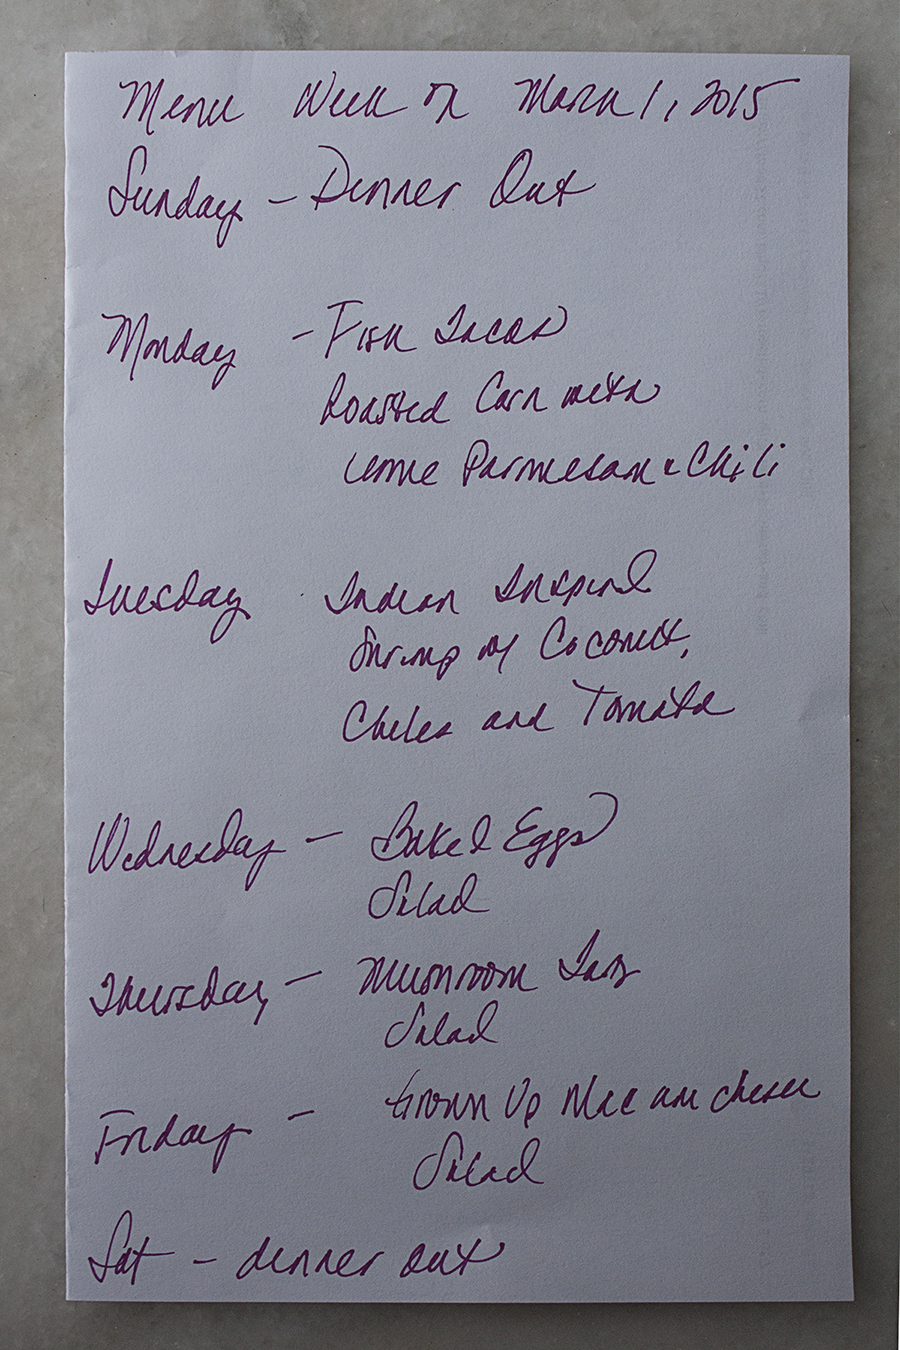 Menu Week of March 1, 2015
Sunday - Dinner Out
Monday - Fish Tacos
Roasted Corn with
Lime Parmesan & Chili
Tuesday Indian Inspired
Shrimp w/ Coconut,
Chiles and Tomato
Wednesday - Baked Eggs
Salad
Thursday - Mushroom
Salad
Friday - Grown Up Mac and cheese
Salad
Sat - dinner out